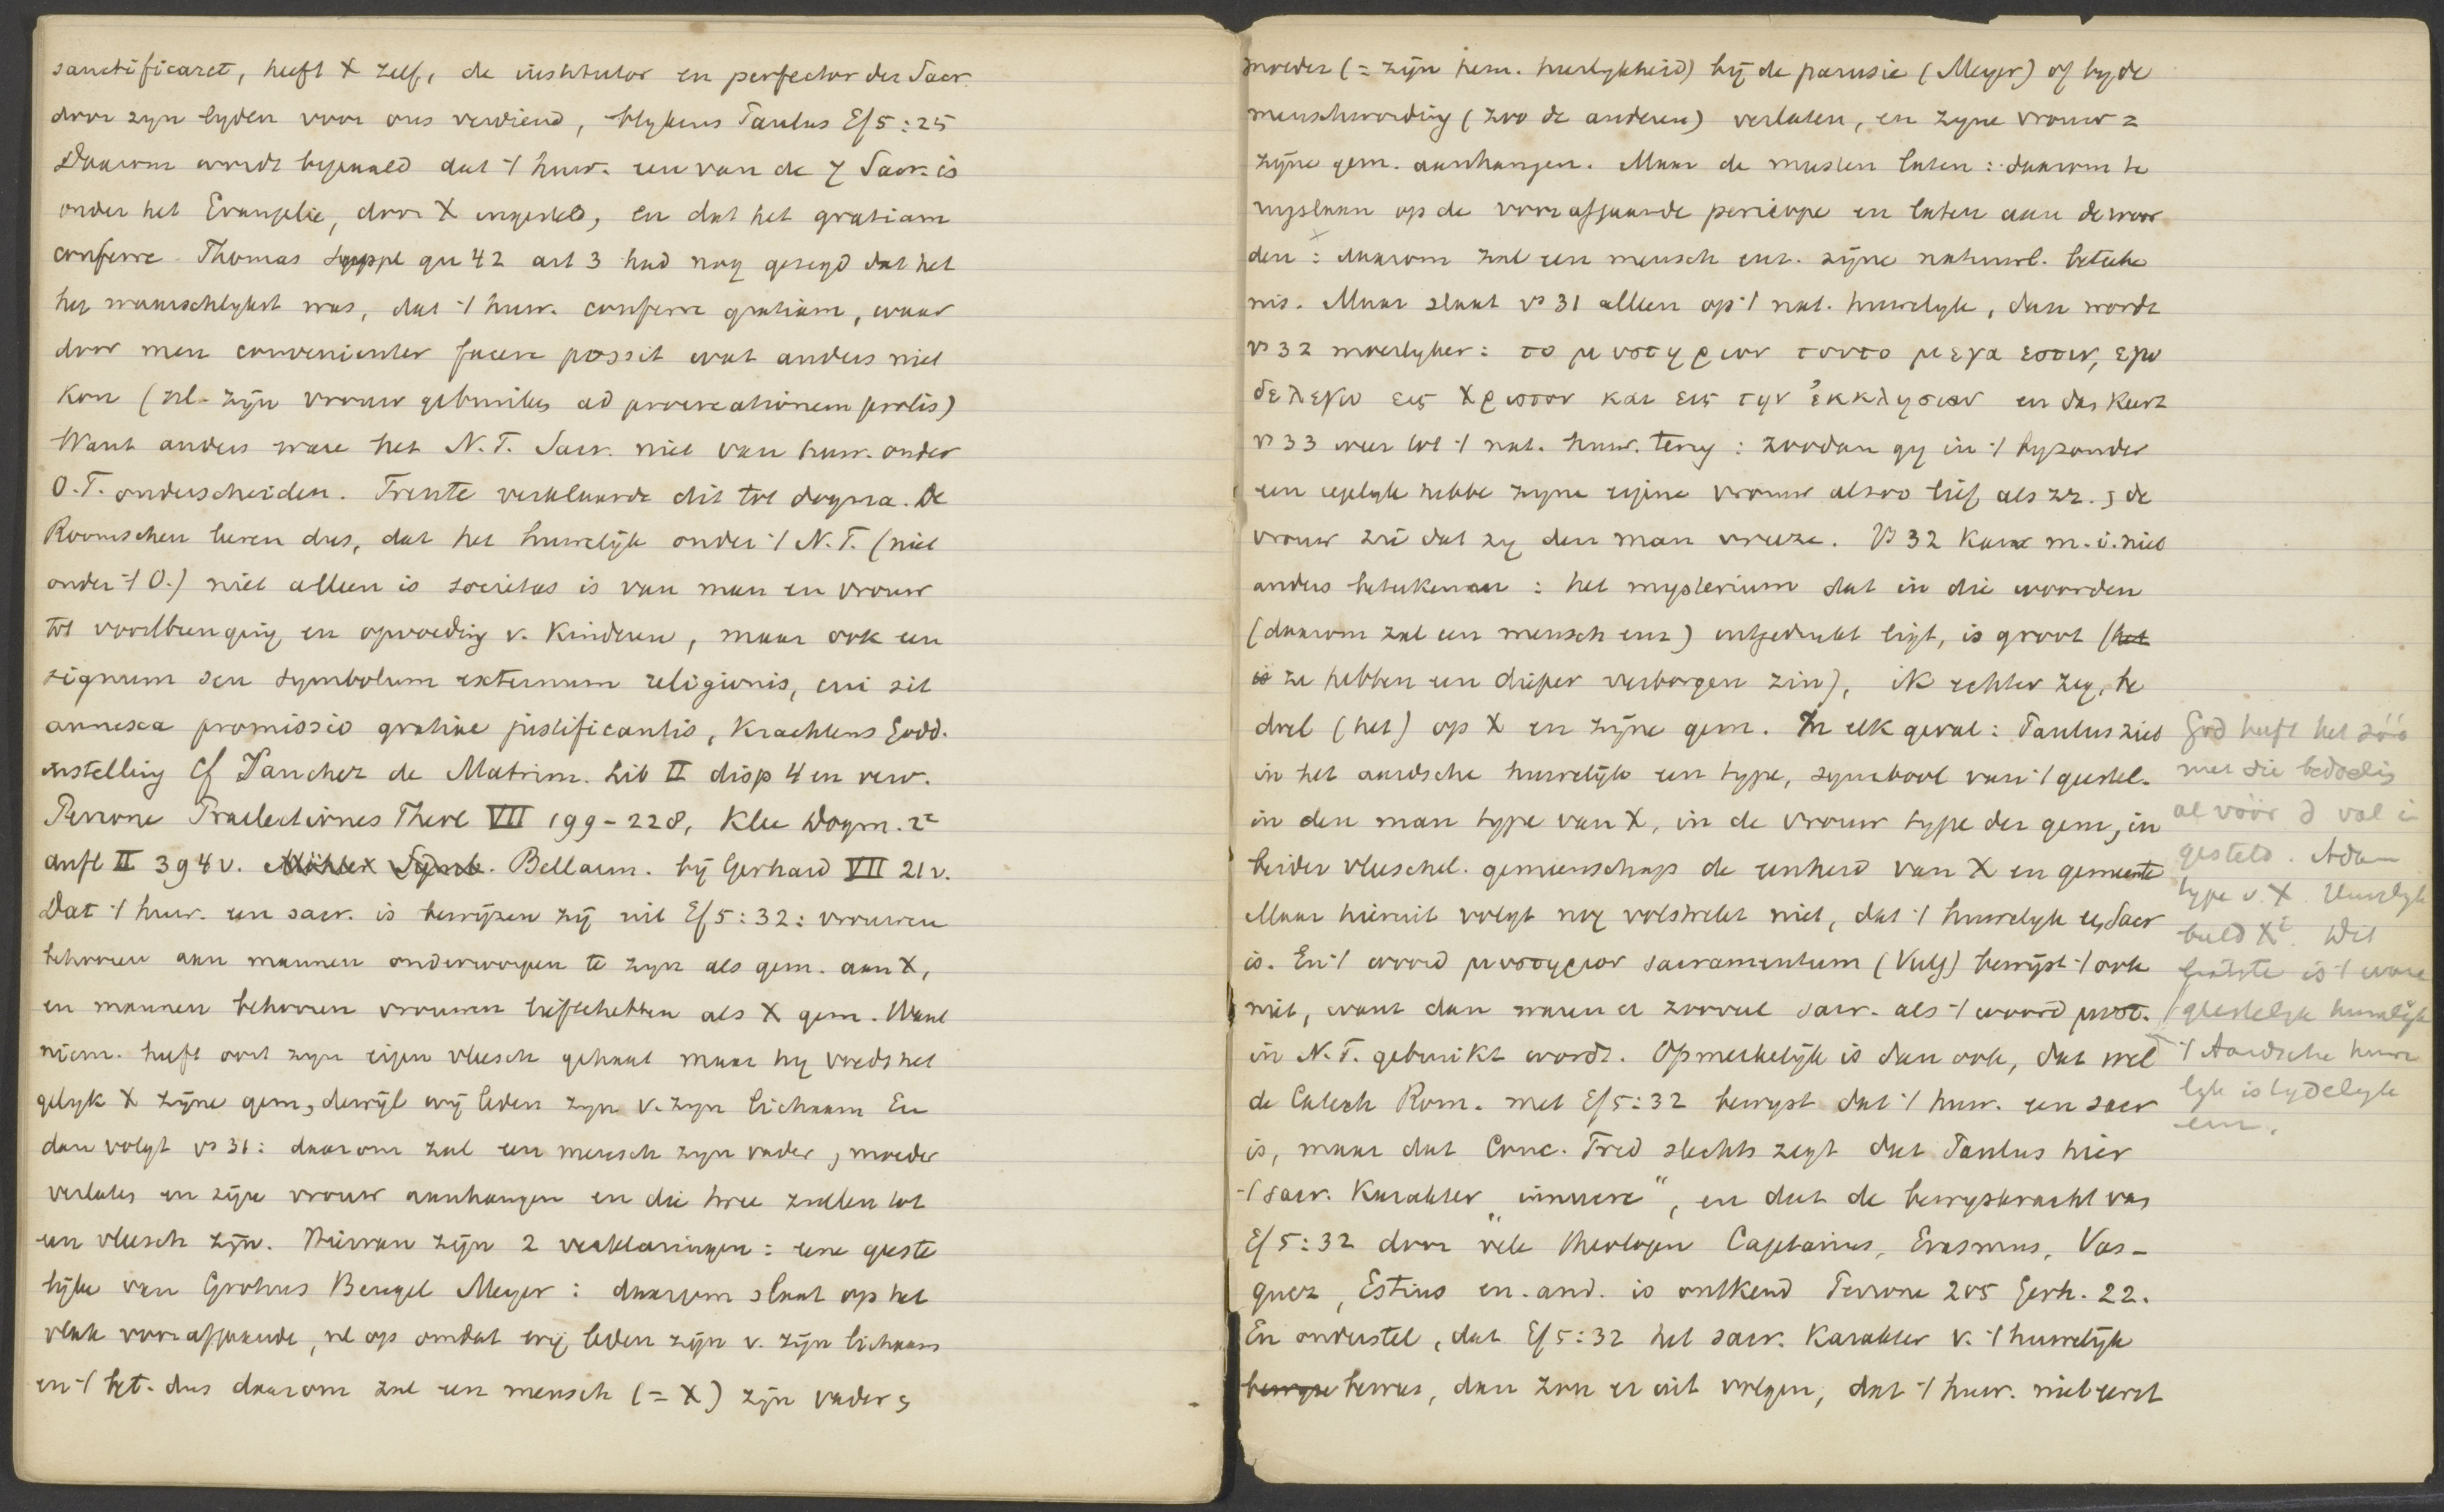 sanctificaret, heeft X zelf, de institutor en perfector der Sacr.
door zyn lyden voor ons verdiend, blykens Paulus Ef 5:25
Daarom wordt bepaald dat 't huw. een van de 7 Sacr. is
onder het Evangelie, door X ingesteld, en dat het gratiam
conferre. Thomas suppl qu 42 art 3 had nog gezegd dat het
het waarschlykst was, dat 't huw. conferre gratiam, waar
door men convenienter facere possit wat anders niet
kon (nl. zijn vrouw gebruiken ad procreationem prolis)
Want anders ware het N.T. Sacr. niet van huw. onder
O.T. onderscheiden. Trente verklaarde dit tot dogma. De
Roomschen leeren dus, dat het huwelijk onder 't N.T. (niet
onder 't O.) niet alleen is societas is van man en vrouw
tot voortbrenging en opvoeding v. kinderen, maar ook een
signum seu symbolum externum religionis, cui sit
annexa promissio gratiae justificantis, krachtens Godd.
instelling Cf Sanchez de Matrim. Lib II disp 4 en verv.
Perrone Praelectiones Theol VII 199-228, Klee Dogm. 2e
aufl II 394 v. Möhler Symb. Bellarm. bij Gerhard VII 21 v.
Dat 't huw. een sacr. is bewijzen zij uit Ef 5:32: vrouwen
behooren aan mannen onderworpen te zyn als gem. aan X,
en mannen behooren vrouwen lieftehebben als X gem. Want
niem. heeft ooit zyn eigen vleesch gehaat maar hy voedt het
gelyk X zijne gem, dewijl wij leden zyn v. zyn lichaam En
dan volgt vs 31: daarom zal een mensch zyn vader, moeder
verlaten en zijne vrouw aanhangen en die twee zullen tot
een vleesch zijn. Hiervan zijn 2 verklaringen: eene geeste
lijke van Grotius Bengel Meyer: daarom slaat op het
vlak voorafgaande, nl op omdat wij leden zijn v. zijn lichaam
en 't bet. dus daarom zal een mensch (= X) zijn vader,
moeder (= zijn hem. heerlykheid) bij de parusie (Meyer) of by de
menschwording (zoo de anderen) verlaten, en zyne vrouw =
zijne gem. aanhangen. Maar de meesten laten: daarom te
rugslaan op de voorafgaande pericope en laten aan de woor
den: daarom zal een mensch enz. zijne natuurl. beteeke
nis. Maar slaat vs 31 alleen op 't nat. huwelyk, dan wordt
vs 32 moeilyker: το μυστηριον τουτο μεγα εστιν, εγω
δε λεγω εις Χριστον και εις την ἐκκλησιαν en dan keert
vs 33 weer tot 't nat. huw. terug: zoodan gy in 't byzonder
een iegelyk hebbe zyne eigene vrouw alzoo lief als zz., de
vrouw zie dat zy den man vreeze. Vs 32 kan m.i. niet
anders beteekenen: het mysterium dat in die woorden
(daarom zal een mensch enz) uitgedrukt ligt, is groot (het
is ze hebben een dieper verborgen zin), ik echter zeg, be
doel (het) op X en zijne gem. In elk geval: Paulus ziet
in het aardsche huwelijk een type, symbool van 't geestel.
in den man type van X, in de vrouw type der gem, in
beider vleeschel. gemeenschap de eenheid van X en gemeente
Maar hieruit volgt nog volstrekt niet, dat 't huwelyk een Sacr
is. En 't woord μυστηριον sacramentum (Vulg) bewijst 't ook
niet, want dan waren er zooveel sacr. als 't woord μυστ.
in N.T. gebruikt wordt. Opmerkelijk is dan ook, dat wel
de Catech Rom. met Ef 5:32 bewyst dat 't huw. een sacr
is, maar dat Conc. Trid slechts zegt dat Paulus hier
't sacr. karakter "innuere", en dat de bewyskracht van
Ef 5:32 door vele theologen Cajetanus, Erasmus, Vas-
quez, Estius en. and. is ontkend Perrone 205 Gerh. 22.
En onderstel, dat Ef 5:32 het sacr. karakter v. 't huwelijk
bewijze bewees, dan zou er uit volgen, dat 't huw. niet eerst
God heeft het zóó
met die bedoelig
al vóór d val i
gesteld. Adam
type v. X. Huwelyk
beeld X. Dit
laatste is 't ware
geestelyk huwelijk
't Aardsche huwe
lyk is tydelyk